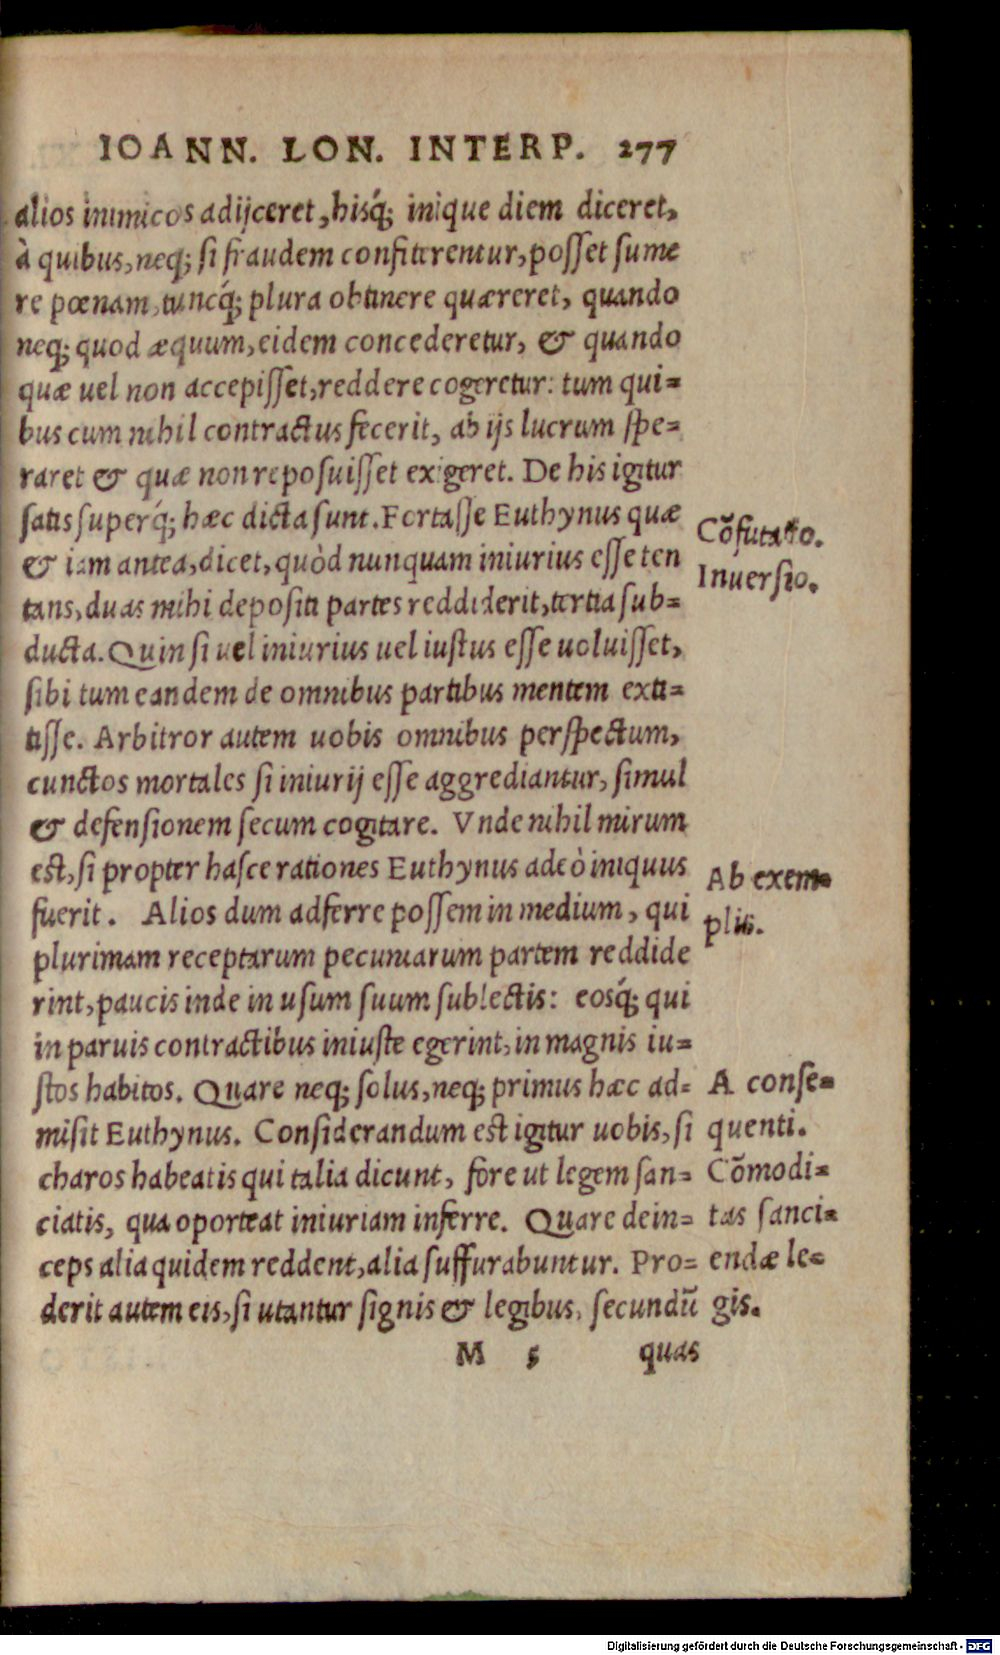 IOANN. LON. INTERP. 277
alios inimicos adijceret, hisq́; inique diem diceret,
à quibus, neq; si fraudem confiterentur, posset sume
re pœnam, tuncq́; plura obtinere quæreret, quando
neq; quod æquum, eidem concederetur, & quando
quæ uel non accepisset, reddere cogeretur: tum qui=
bus cum nihil contractus fecerit, ab ijs lucrum spe=
raret & quæ non reposuisset exigeret. De his igitur
satis superq́; hæc dicta sunt. Fortasse Euthynus quæ
& iam antea, dicet, quòd nunquam iniurius esse ten
tans, duas mihi depositi partes reddiderit, tertia sub=
ducta. Quin si uel iniurius uel iustus esse uoluisset,
sibi tum eandem de omnibus partibus mentem exti=
tisse. Arbitror autem uobis omnibus perspectum,
cunctos mortales si iniurij esse aggrediantur, simul
& defensionem secum cogitare. Vnde nihil mirum
est, si propter hasce rationes Euthynus adeò iniquus
fuerit. Alios dum adferre possem in medium, qui
plurimam receptarum pecuniarum partem reddide
rint, paucis inde in usum suum sublectis: eosq́; qui
in paruis contractibus iniuste egerint, in magnis iu=
stos habitos. Quare neq; solus, neq; primus hæc ad=
misit Euthynus. Considerandum est igitur uobis, si
charos habeatis qui talia dicunt, fore ut legem san=
ciatis, qua oporteat iniuriam inferre. Quare dein=
ceps alia quidem reddent, alia suffurabuntur. Pro=
derit autem eis, si utantur signis & legibus, secundũ
M 5 quas
Cõfutatio.
Inuersio.
Ab exem=
plis.
A conse=
quenti.
Cõmodi=
tas sanci=
endæ le=
gis.
Digitalisierung gefördert durch die Deutsche Forschungsgemeinschaft - DFG